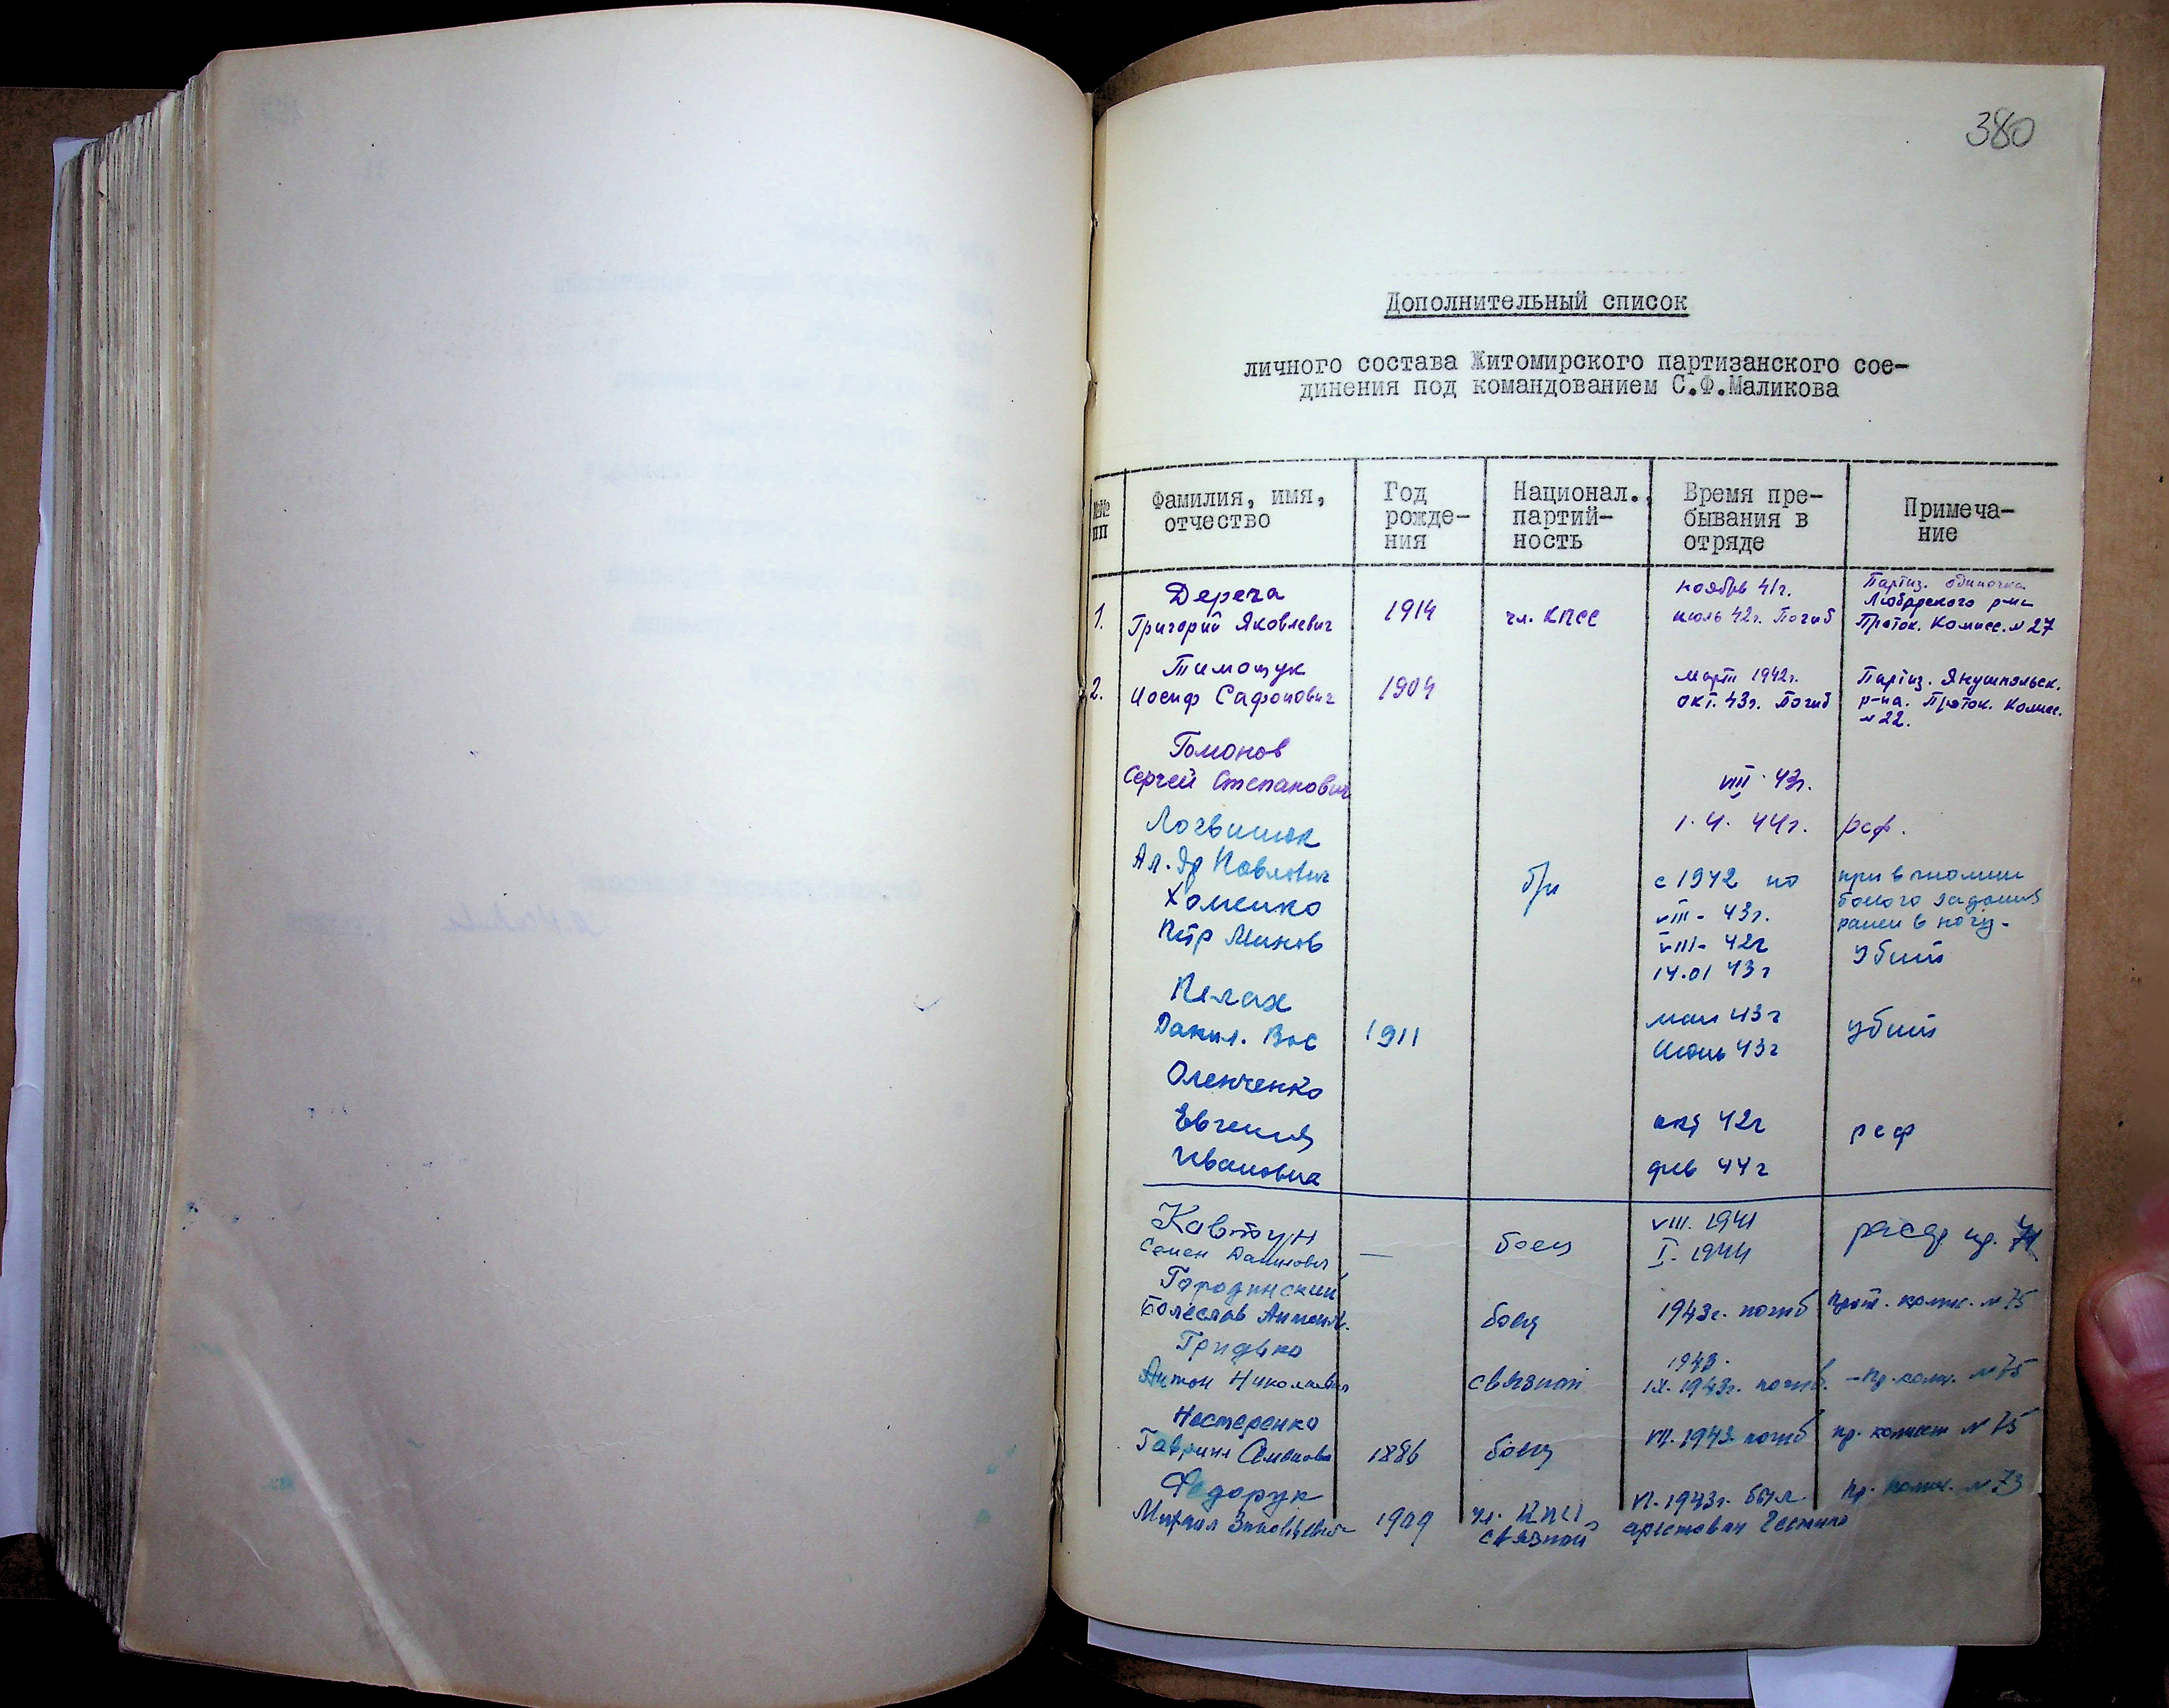 380
Дополнительный список
личного состава Житомирского партизанского сое-
динения под командованием С.Ф.Маликова
№№ пп
Фамилия, имя, отчество
Год рожде- ния
Национал., партий- ность
Время пре- бывания в отряде
Примеча- ние
1.
Дереча
Григорий Яковлевич
1914
чл. КПСС
ноябрь 41г.
июль 42г. Погиб
Партиз. одиночка
Любарского р-на
Проток. Комисс. №27
2.
Тимощук
Иосиф Сафонович
1904
март 1942г.
окт. 43г. Погиб
Партиз. Янушпольск.
р-на. Проток. Комисс.
№22.
Гомонов
Сергей Степанович
VIII 43г.
1. 4. 44г.
рсф.
Логвинюк
Ал-др Павлович
б/п
с 1942 по
VIII - 43г.
при
задания
ранен в ногу.
Хоменко
Петр Минов
VIII - 42г
14.01 43г
убит
Пелах
Данил. Вас
1911
май 43г
июнь 43г
убит
Оленченко
Евгения
Ивановна
42г
фев 44г
рсф
Кавтун
Семен Данилович
—
боец
VIII. 1941
I. 1944
расф
Городинский
Болеслав Антонов.
боец
1943г. погиб
прот. комис. №75
Гридько
Антон Николаевич
связной
1943.
IX. 1943г. погиб.
- пр. комис. №75
Нестеренко
Гаврил Семенович
1886
боец
VII. 1943. погиб
пр. комисс №75
Федорук
Михаил Зиновьевич
1909
чл. КПСС,
связной
VI. 1943г. был
арестован Гестапо
пр. комис. №73